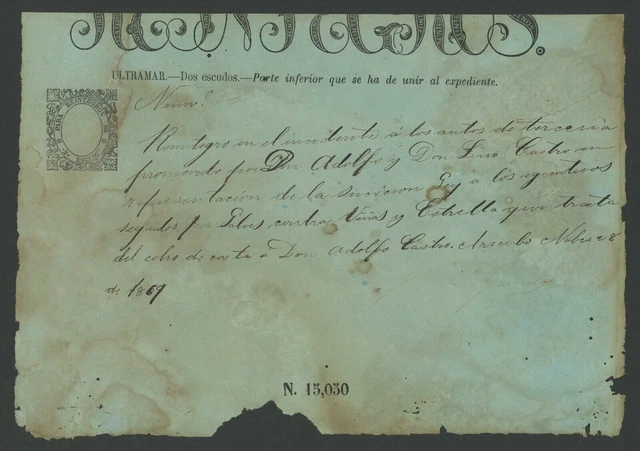 ULTRAMAR.—Dos escudos.—Parte inferior que se ha de unir al expediente.
Num.
PARA REINTEGROS DE
Reintegro en el incidente á los autos de terceria
promovido por Don Adolfo y Don Castro en
representacion de la Sucesion y a los ejecutivos
seguidos por contra Viñas y Estrella que trata
del cobro de costa á Don Adolfo Castro. Arecibo Nobre 28
de 1869
N. 15,050